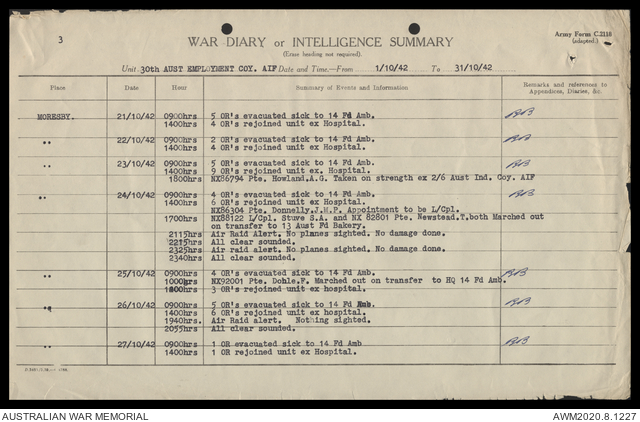 3
WAR DIARY or INTELLIGENCE SUMMARY
(Erase heading not required).
Army Form C.2118
(adapted.)
Unit 30th AUST EMPLOYMENT COY. AIF Date and Time.—From 1/10/42 To 31/10/42
Place Date Hour Summary of Events and Information Remarks and references to Appendices, Diaries, &c.
MORESBY. 21/10/42 0900hrs 5 OR's evacuated sick to 14 Fd Amb.
1400hrs 4 OR's rejoined unit ex Hospital.
" 22/10/42 0900hrs 2 OR's evacuated sick to 14 Fd Amb.
1400hrs 4 OR's rejoined unit ex Hospital.
" 23/10/42 0900hrs 5 OR's evacuated sick to 14 Fd Amb.
1400hrs 9 OR's rejoined unit ex. Hospital.
1800hrs NX86794 Pte. Howland.A.G. Taken on strength ex 2/6 Aust Ind. Coy. AIF
" 24/10/42 0900hrs 4 OR's evacuated sick to 14 Fd Amb.
1400hrs 6 OR's rejoined unit ex Hospital.
NX86304 Pte. Donnelly.J.M.P. Appointment to be L/Cpl.
1700hrs NX88122 L/Cpl. Stuve S.A. and NX 82801 Pte. Newstead.T.both Marched out
on transfer to 13 Aust Fd Bakery.
2115hrs Air Raid Alert. No planes sighted. No damage done.
2215hrs All clear sounded.
2325hrs Air raid alert. No planes sighted. No damage done.
2340hrs All clear sounded.
" 25/10/42 0900hrs 4 OR's evacuated sick to 14 Fd Amb.
1000hrs NX92001 Pte. Dohle.F. Marched out on transfer to HQ 14 Fd Amb.
1400hrs 3 OR's rejoined unit ex hospital.
" 26/10/42 0900hrs 5 OR's evacuated sick to 14 Fd Amb.
1400hrs 6 OR's rejoined unit ex hospital.
1940hrs. Air Raid alert. Nothing sighted.
2055hrs All clear sounded.
" 27/10/42 0900hrs 1 OR evacuated sick to 14 Fd Amb
1400hrs 1 OR rejoined unit ex Hospital.
AUSTRALIAN WAR MEMORIAL AWM2020.8.1227